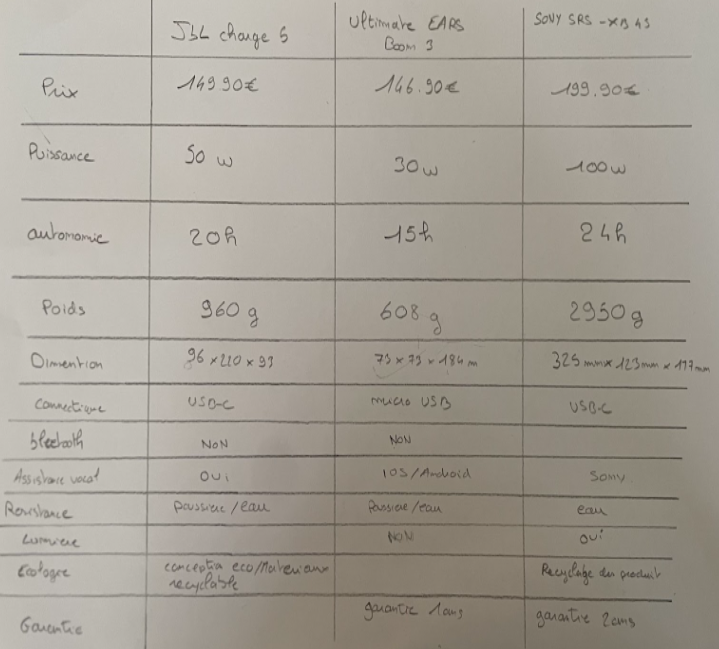 JbL charge 5
Ultimate EARS
Boom 3
SONY SRS -XB 43
Prix
149.90€
146.90€
199.90€
Puissance
50 w
30w
100w
automomie
20h
15h
24h
Poids
960 g
608 g
2950g
Dimention
96 x 220 x 93
73 x 73 x 184 m
325 mm x 123mm x 117mm
connectique
USB-C
micro USB
USB-C
bleetooth
NON
NON
Assistance vocal
oui
IOS/Android
Sony
Resistance
poussiere /eau
Poussiere/eau
eau
Lumiere
NON
oui
Ecologie
conceptio eco/Materiaux
recyclable
Recyclage du produit
Garantie
garantie 1ans
garantie 2ans